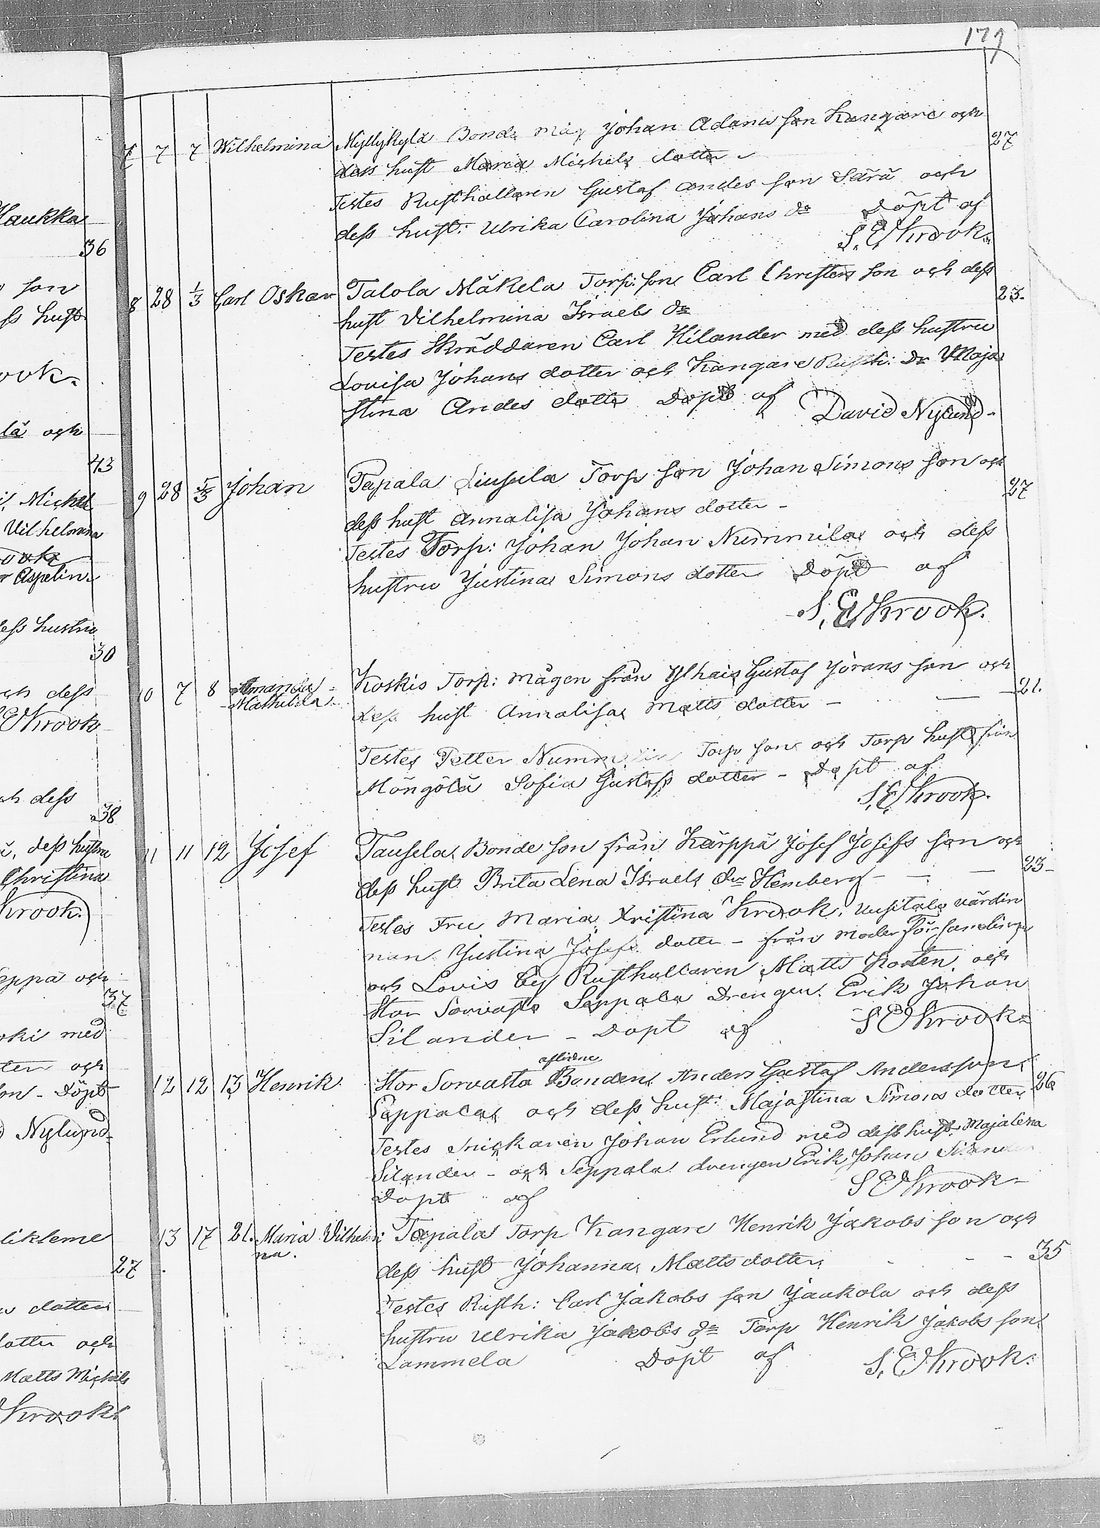 179
Haukka
36
son
dess hust
ook.
lä och
43
Michel
Vilhelmina
Aspelin
dess hustru
30
och dess
S. E. Krook
och dess
38
dess hustru
Christina
Krook.
eppä och
37
oski med
ter och
on - Döpt
Nylund
likleme
27
dotter
dotter och
Matts Michels
Krook
7 7 7 Wilhelmina Myllykylä Bonde måg Johan Adams son Kangare och 27
dess hust Maria Michels dotter
Testes Rusthållaren Gustaf Anders son Särä och
dess hust: Ulrika Carolina Johans dr Döpt af
S. E. Krook.
8 28 1/3 Carl Oskar Talola Mäkelä Torp: son Carl Christers son och dess 23.
hust Vilhelmina Israels dr
Testes Skräddaren Carl Kilander med dess hustru
Lovisa Johans dotter och Kangare Rusth: Dr Maja
Stina Anders dotter Döpt af David Nylund
9 28 5/3 Johan Papala Torp son Johan Simons son och 27
dess hust Annalisa Johans dotter -
Testes Torp: Johan Johan Nummila och dess
hustru Justina Simons dotter Döpt af
S. E. Krook.
10 7 8 Amanda Mathilda Koskis Torp: mågen från Gustaf Jörans son och 21.
dess hust Annalisa Matts dotter -
Testes Petter Torp son och Torp hust från
Möngölä Sofia Gustafs dotter - Döpt af
S. E. Krook.
11 11 12 Josef Tausela Bonde son från Kärppä Josef Josefs son och 23
dess hust Brita Lena Israels dr Hemberg
Testes Fru Maria Kristina Krook, värdin
nan Justina Josefs dotter - från
och Lovis By Rusthållaren Matts och
Stor Sorvasta Seppälä Drängen Erik Johan
Silander - Döpt af S. E. Krook
12 12 13 Henrik Stor Sorvasta aflidne Bonden Anders Gustaf Andersson 26
Seppälä och dess hust: Majastina Simons dotter
Testes Snickaren Johan Erlund med dess hust Majalena
Silander - och Seppälä drengen Erik Johan Silander
Döpt af S. E. Krook
13 17 21. Maria Vilhelmi
na. Papala Torp Kangare Henrik Jakobs son och 35
dess hust Johanna Mattsdotter
Testes Rusth: Carl Jakobs son Jaakola och dess
hustru Ulrika Jakobs dr Torp Henrik Jakobs son
Lammela Döpt af S. E. Krook.